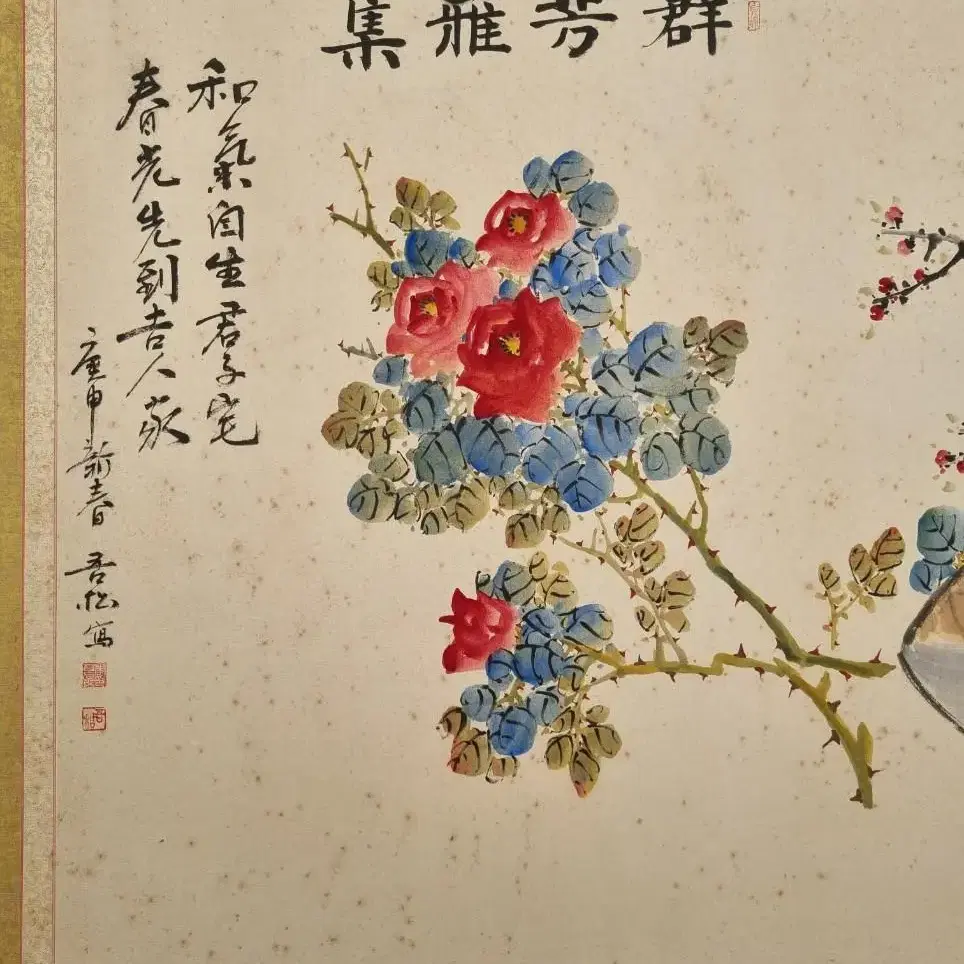 群芳雅集
和氣自生君子宅
春光先到吉人家
庚申新春 杏松寫